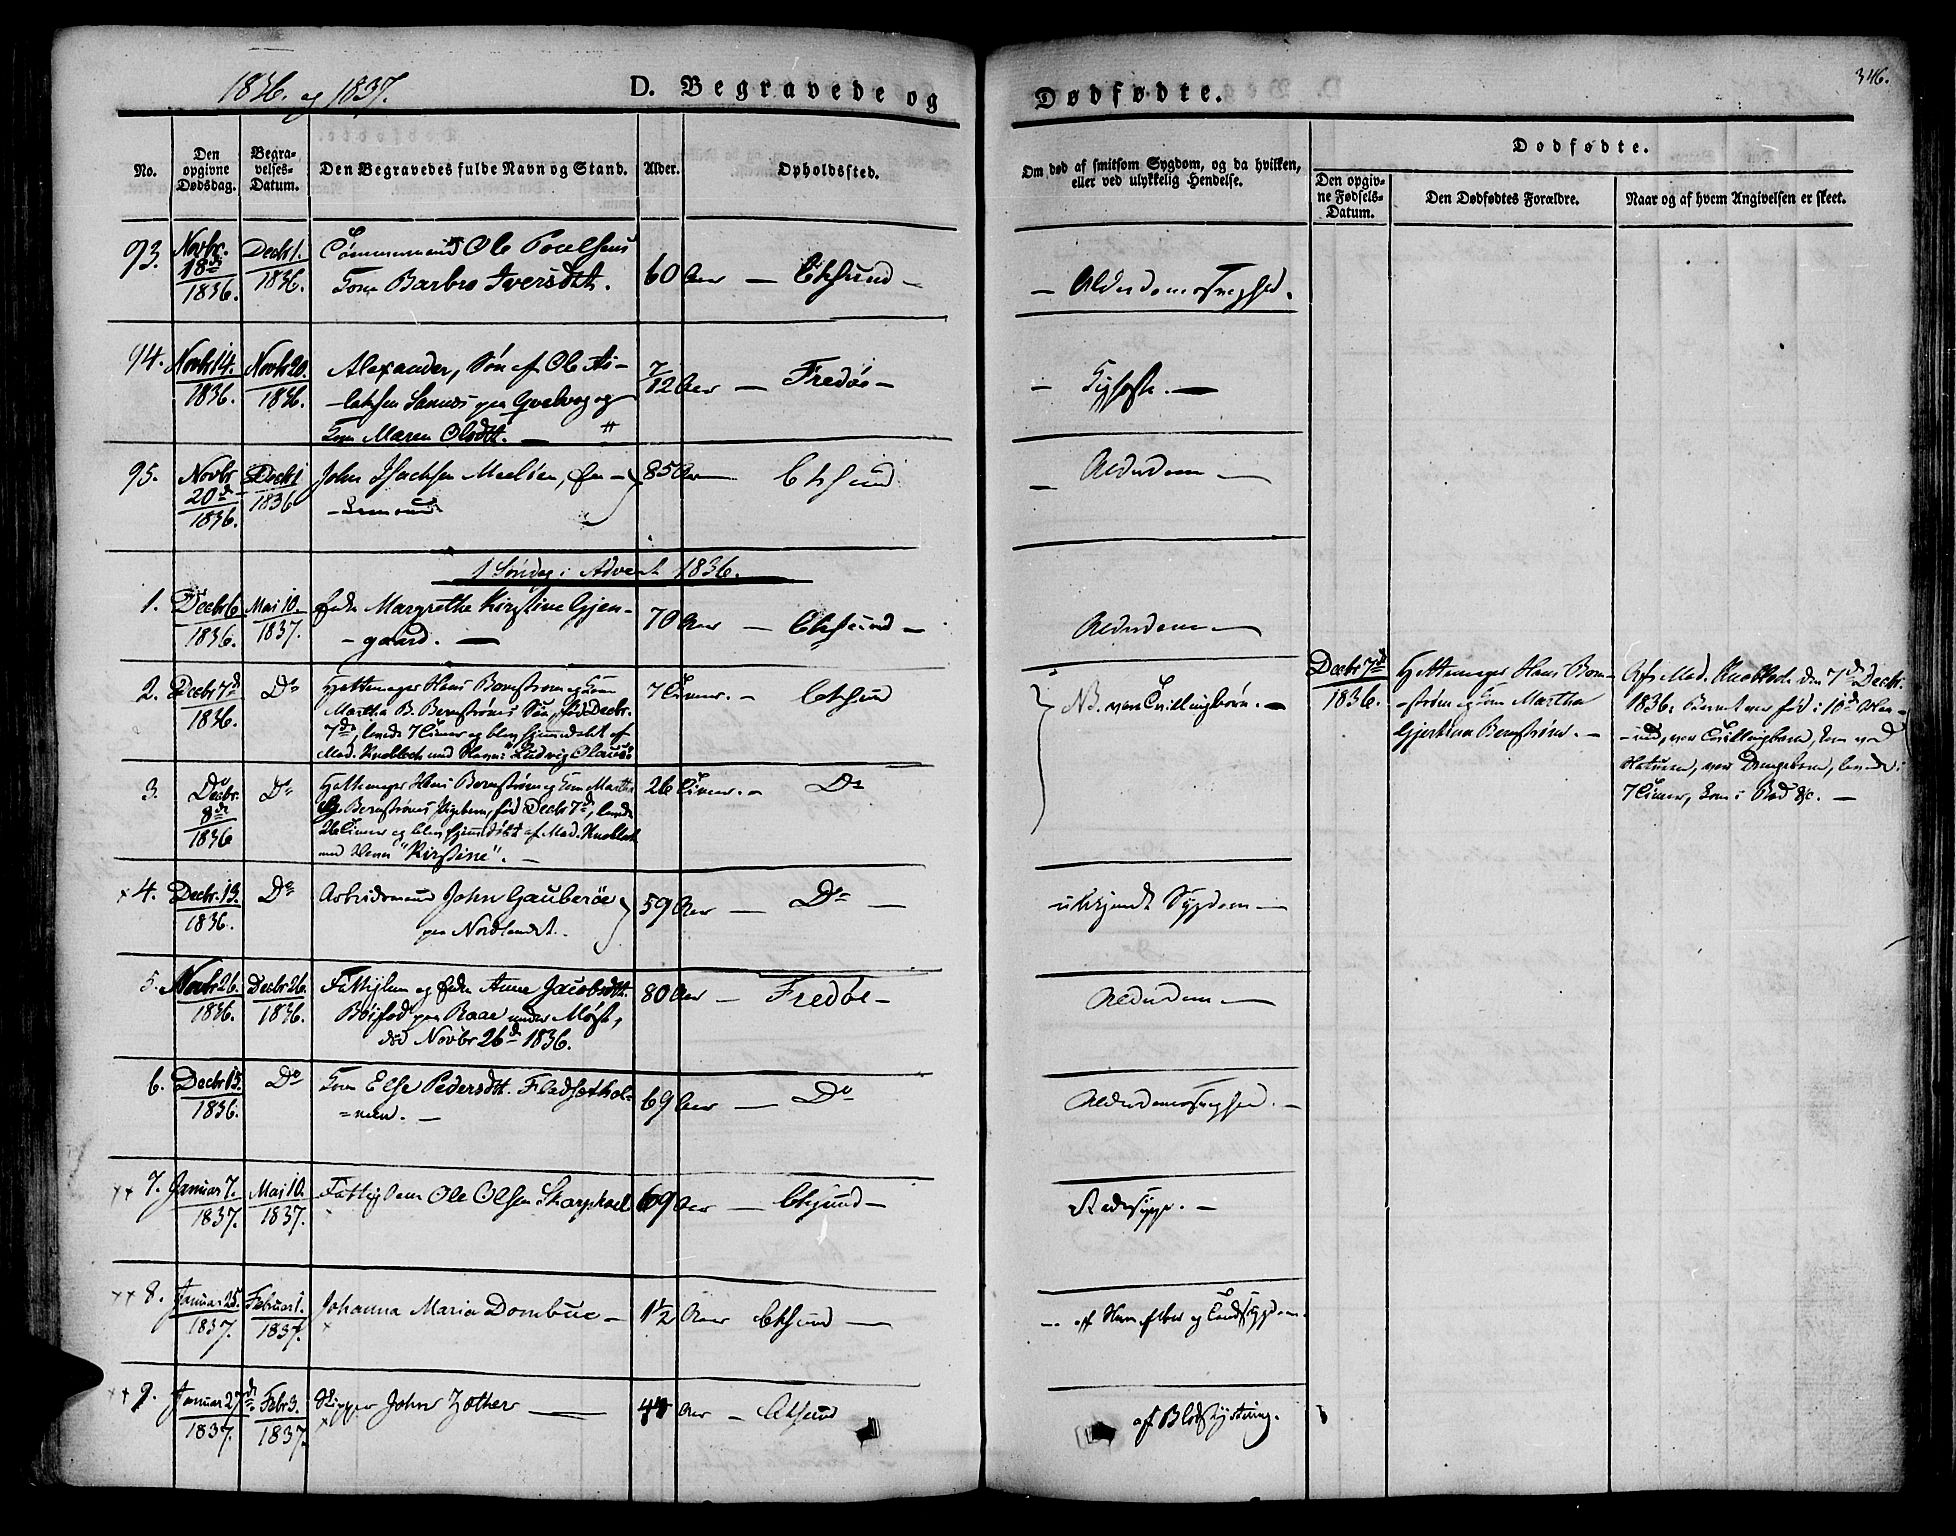 1836. og 1837.
D. Begravede og
Dødfødte.
346.
No.
Den opgivne Dødsdag.
Begravelses-Datum.
Den Begravedes fulde Navn og Stand.
Alder.
Opholdssted.
Om død af smitsom Sygdom, og da hvilken,
eller ved ulykkelig Hendelse.
Dødfødte.
Den opgivne Fødsels-Datum.
Den Dødfødtes Forældre.
Naar og af hvem Angivelsen er skeet.
93. Novbr. 18de 1836. Decbr 1. 1836. Tømmermand Ole Poulsens
Kone Barbro Iversdtt. 60 Aar — — Alderdomssvaghed.
94. Novbr 14. 1836. Novbr 20. 1836. Alexander, Søn af Ole As-
-laksen Sannes paa og
Kone Maren Olsdtt. — 7/12 Aar — Fredøe —
95. Novbr 20de 1836. Decbr 1 1836 John Isachsen Meeløen, En-
-kemand 85 Aar — Alderdom —
1 Søndag i Advent 1836.
1. Decbr 6 1836. Mai 10. 1837. Enke Margrethe Kirstine Gjen-
-gaard. — 70 Aar — Alderdom —
2. Decbr 7de 1836. Do Hattemager Hans Bernstrøm og Kone
Martha B. Bernstrøms Søn, fød Decbr.
7de, levede 7 Timer og blev hjemmedøbt af
Mad. Knobloch med Navn: "Ludvig Olaus". 7 Timer. — NB. var Tvillingbørn. —
Decbr 7de 1836. Hattemager Hans Bern-
-strøm og Kone Martha
Gjertina Bernstrøm. —
Af Mad. Knobloch den 7de Decbr.
1836. Barnet var fød i 10de Maa-
-ned, var Tvillingbarn, kom ved
Naturen, var Drengebarn, levede i
7 Timer, kom i Bad &c. —
3. Decbr. 8de 1836 Do Hattemager Hans Bernstrøm og Kone Martha
B. Bernstrøms Pigebarn, fød Decbr 7de, levede
26 Timer og blev hjemmedøbt af Mad. Knobloch
med Navn "Kirstine". — 26 Timer. — Do
× 4. Decbr. 13. 1836. Do Arbeidsmand John Gauberøe
paa Nordlandet. 59 Aar — Do — ukjendt Sygdom —
5. Novbr 26. 1836. Decbr 26. 1836. Fattiglem og Enke Anne Jacobsdtt.
paa Raae under Møst,
død Novbr 26de 1836. 80 Aar — Fredøe — Alderdom —
6. Decbr 15. 1836. Do Kone Else Pedersdtt. Fladsethol-
=men. — 69 Aar — Do Alderdomssvaghed. —
×× 7. Januar 7. 1837. Mai 10. 1837. Fattiglem Ole Olsen 69 Aar — Radesyge. —
×× 8. Januar 25. 1837. Februar 1. 1837. Johanna Maria Dombue — 1 1/2 Aar — af og Tandsygdom.
×× 9. Januar 27de 1837. Febr 3. 1837. Skipper John Zother — 44 Aar — af Blodstyrtning.